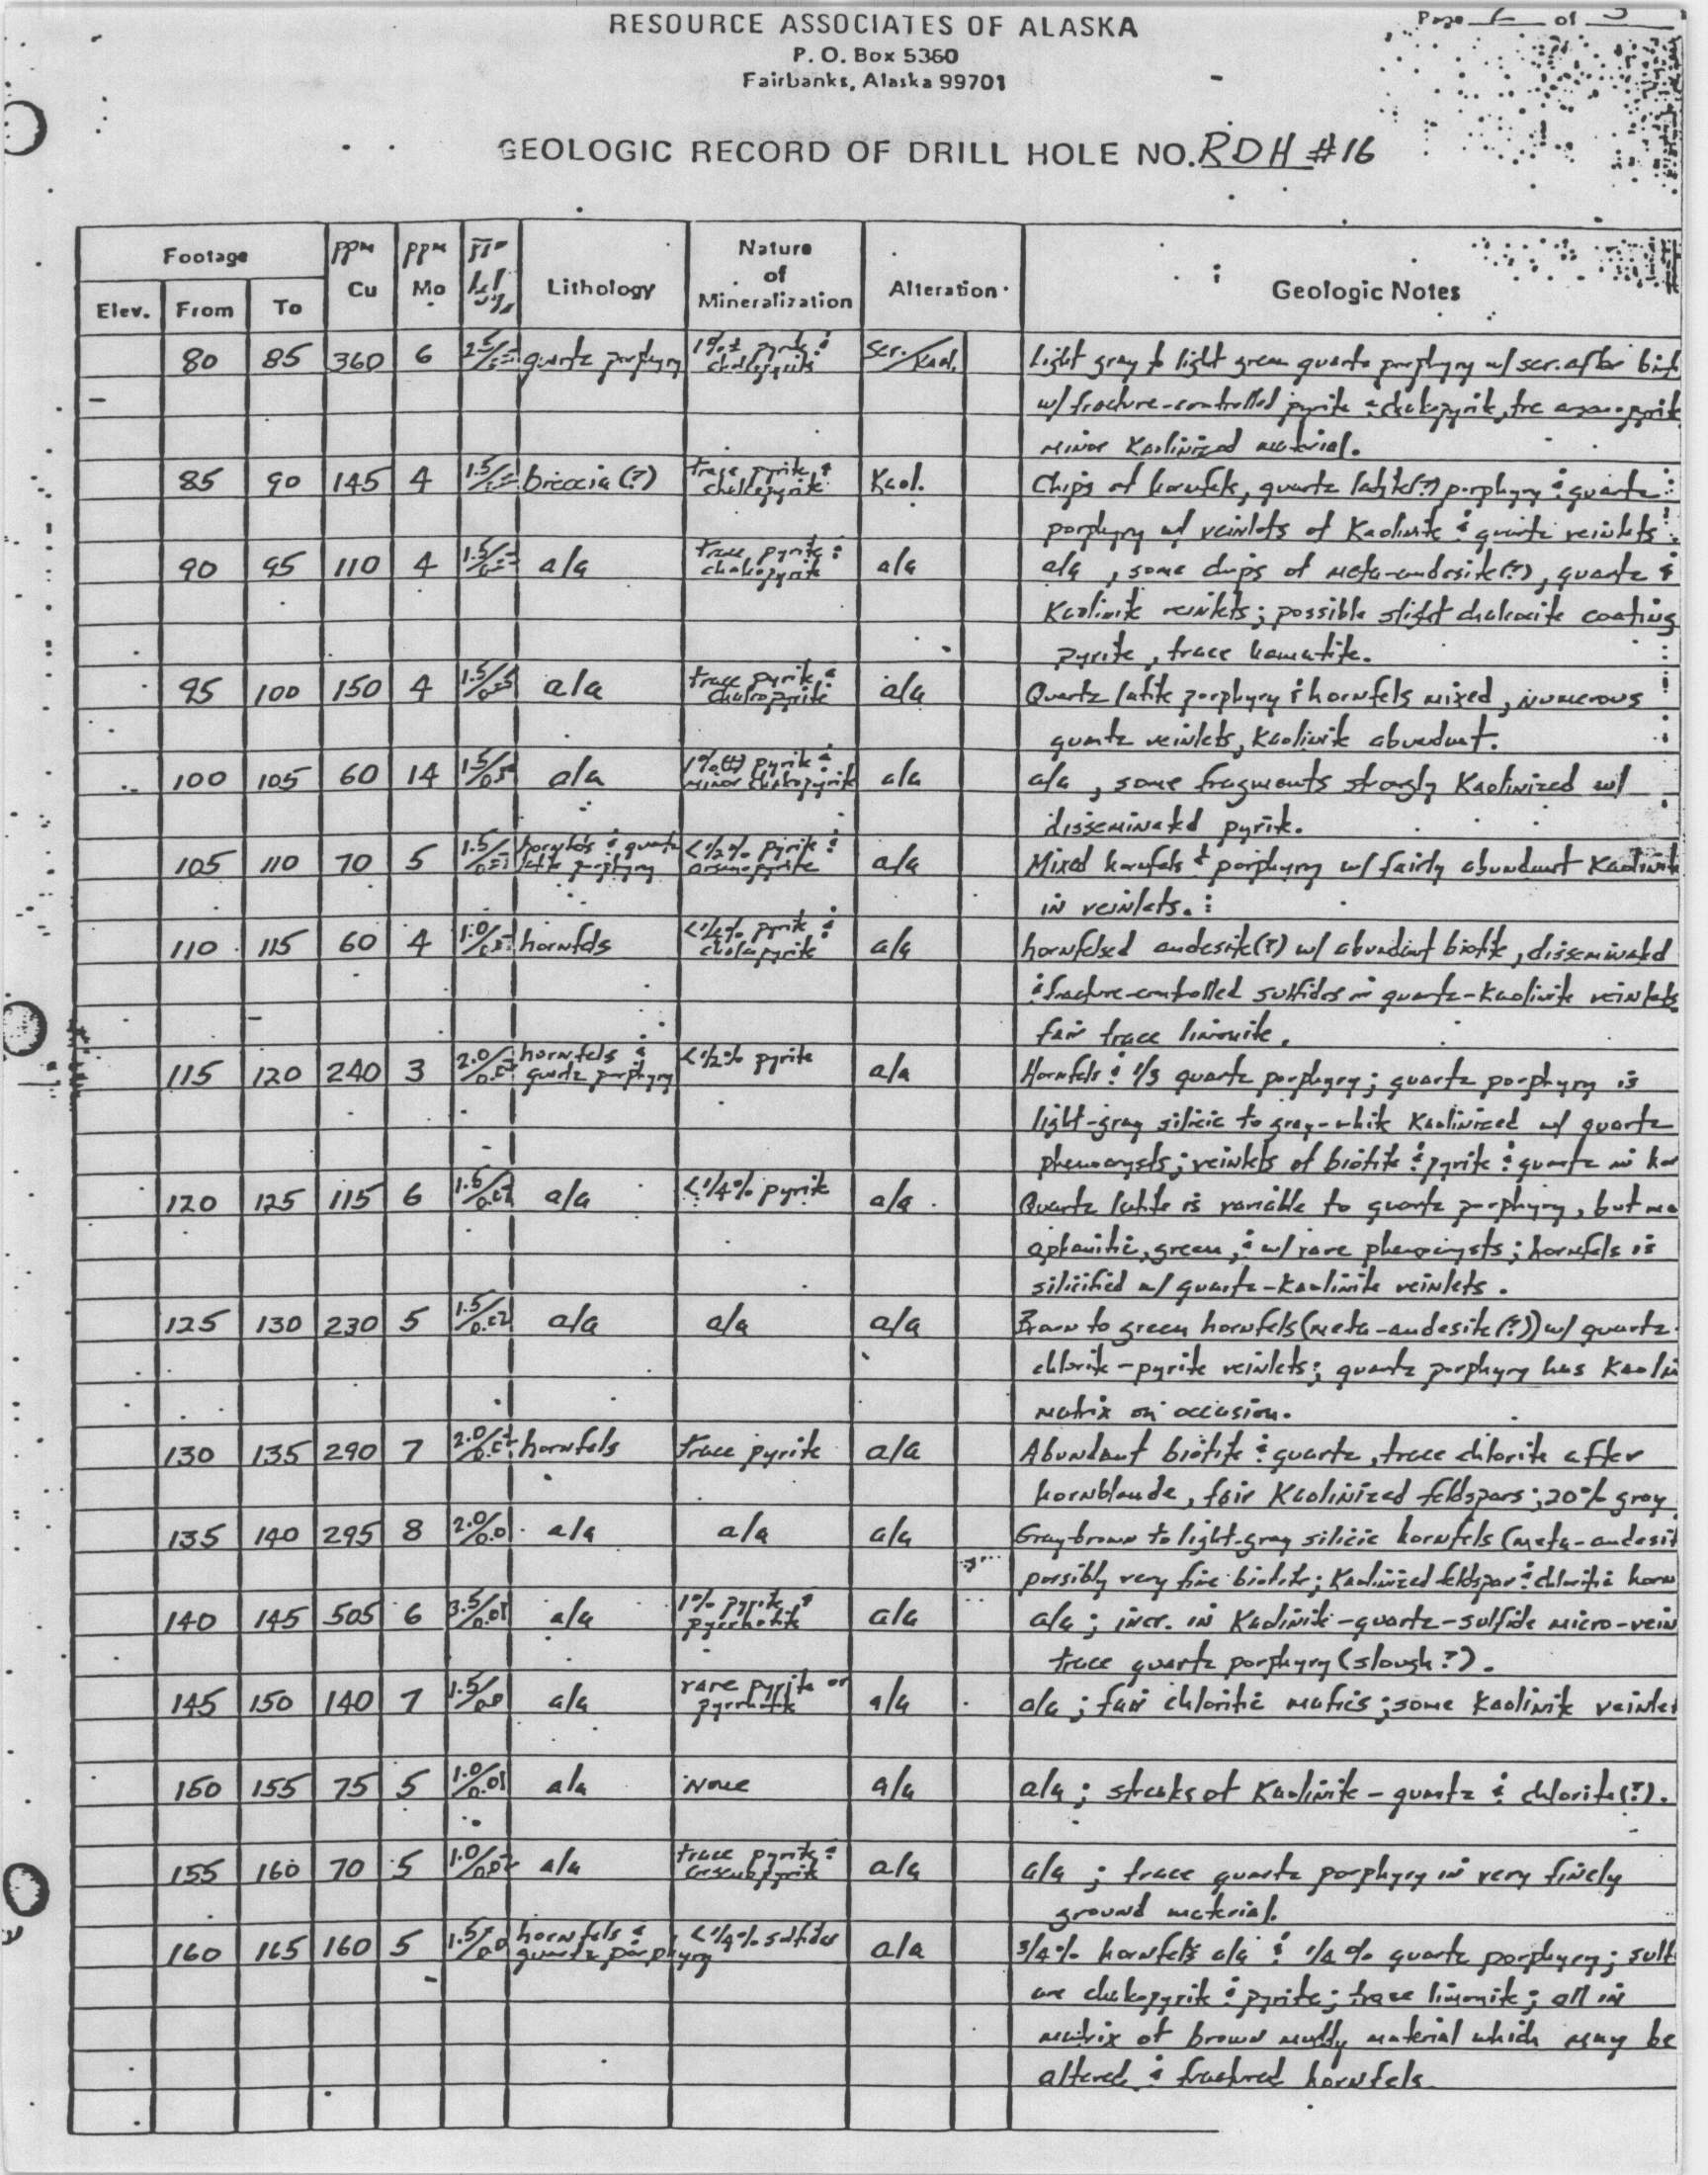 Page of
RESOURCE ASSOCIATES OF ALASKA
P. O. Box 5360
Fairbanks, Alaska 99701
GEOLOGIC RECORD OF DRILL HOLE NO. RDH #16
Footage ppm ppm Nature
Cu Mo Lithology of Alteration Geologic Notes
Elev. From To Mineralization
80 85 360 6 2.5/ quartz porphyry 1%± pyrite & chalcopyrite Ser./Kaol. Light gray to light green quartz porphyry w/ ser. after
w/ fracture-controlled pyrite & chalcopyrite, trc
minor Kaolinized material.
85 90 145 4 1.5/ breccia (?) trace pyrite & chalcopyrite Kaol. Chips of hornfels, quartz latite(?) porphyry & quartz
porphyry w/ veinlets of Kaolinite & quartz veinlets
90 95 110 4 1.5/ a/a trace pyrite & chalcopyrite a/a a/a, some chips of meta-andesite(?), quartz &
Kaolinite veinlets; possible slight chalcocite coating
pyrite, trace hematite.
95 100 150 4 1.5/ a/a trace pyrite & chalcopyrite a/a Quartz latite porphyry & hornfels mixed, numerous
quartz veinlets, Kaolinite abundant.
100 105 60 14 1.5/ a/a 1%(±) pyrite & minor chalcopyrite a/a a/a, some fragments strongly Kaolinized w/
disseminated pyrite.
105 110 70 5 1.5/ hornfels & quartz latite porphyry <1/2% pyrite & arsenopyrite a/a Mixed hornfels & porphyry w/ fairly abundant
in veinlets.
110 115 60 4 1.0/ hornfels pyrite & chalcopyrite a/a hornfelsed andesite(?) w/ abundant biotite, disseminated
& fracture-controlled sulfides in quartz-Kaolinite veinlets
fair trace limonite.
115 120 240 3 2.0/ hornfels & quartz porphyry <1/2% pyrite a/a Hornfels & 1/3 quartz porphyry; quartz porphyry is
light-gray silicic to gray-white Kaolinized w/ quartz
phenocrysts; veinlets of biotite & pyrite & quartz in
120 125 115 6 1.5/ a/a <1/4% pyrite a/a Quartz latite is variable to quartz porphyry, but
aphanitic, green, & w/ rare phenocrysts; hornfels is
silicified w/ quartz-Kaolinite veinlets.
125 130 230 5 1.5/ a/a a/a a/a Brown to green hornfels (meta-andesite (?)) w/ quartz
chlorite-pyrite veinlets; quartz porphyry has
matrix on occasion.
130 135 290 7 2.0/ hornfels Trace pyrite a/a Abundant biotite & quartz, trace chlorite after
hornblende, fair Kaolinized feldspars; 20% gray
135 140 295 8 2.0/ a/a a/a a/a Gray-brown to light-gray silicic hornfels (meta-andesit
possibly very fine biotite; Kaolinized feldspar & chloritic horn
140 145 505 6 3.5/0.01 a/a 1% pyrite & pyrrhotite a/a a/a; incr. in Kaolinite-quartz-sulfide micro-vein
trace quartz porphyry (slough?).
145 150 140 7 1.5/ a/a rare pyrite or pyrrhotite a/a a/a; fair chloritic mafics; some Kaolinite veinlet
150 155 75 5 1.0/0.01 a/a None a/a a/a; streaks of Kaolinite-quartz & chlorite(?).
155 160 70 5 1.0/ a/a trace pyrite & arsenopyrite a/a a/a; trace quartz porphyry in very finely
ground material.
160 165 160 5 1.5/ hornfels & quartz porphyry <1/4% sulfides a/a 3/4% hornfels a/a & 1/4% quartz porphyry; sulf
are chalcopyrite & pyrite; trace limonite; all in
matrix of brown muddy material which may be
altered & fractured hornfels